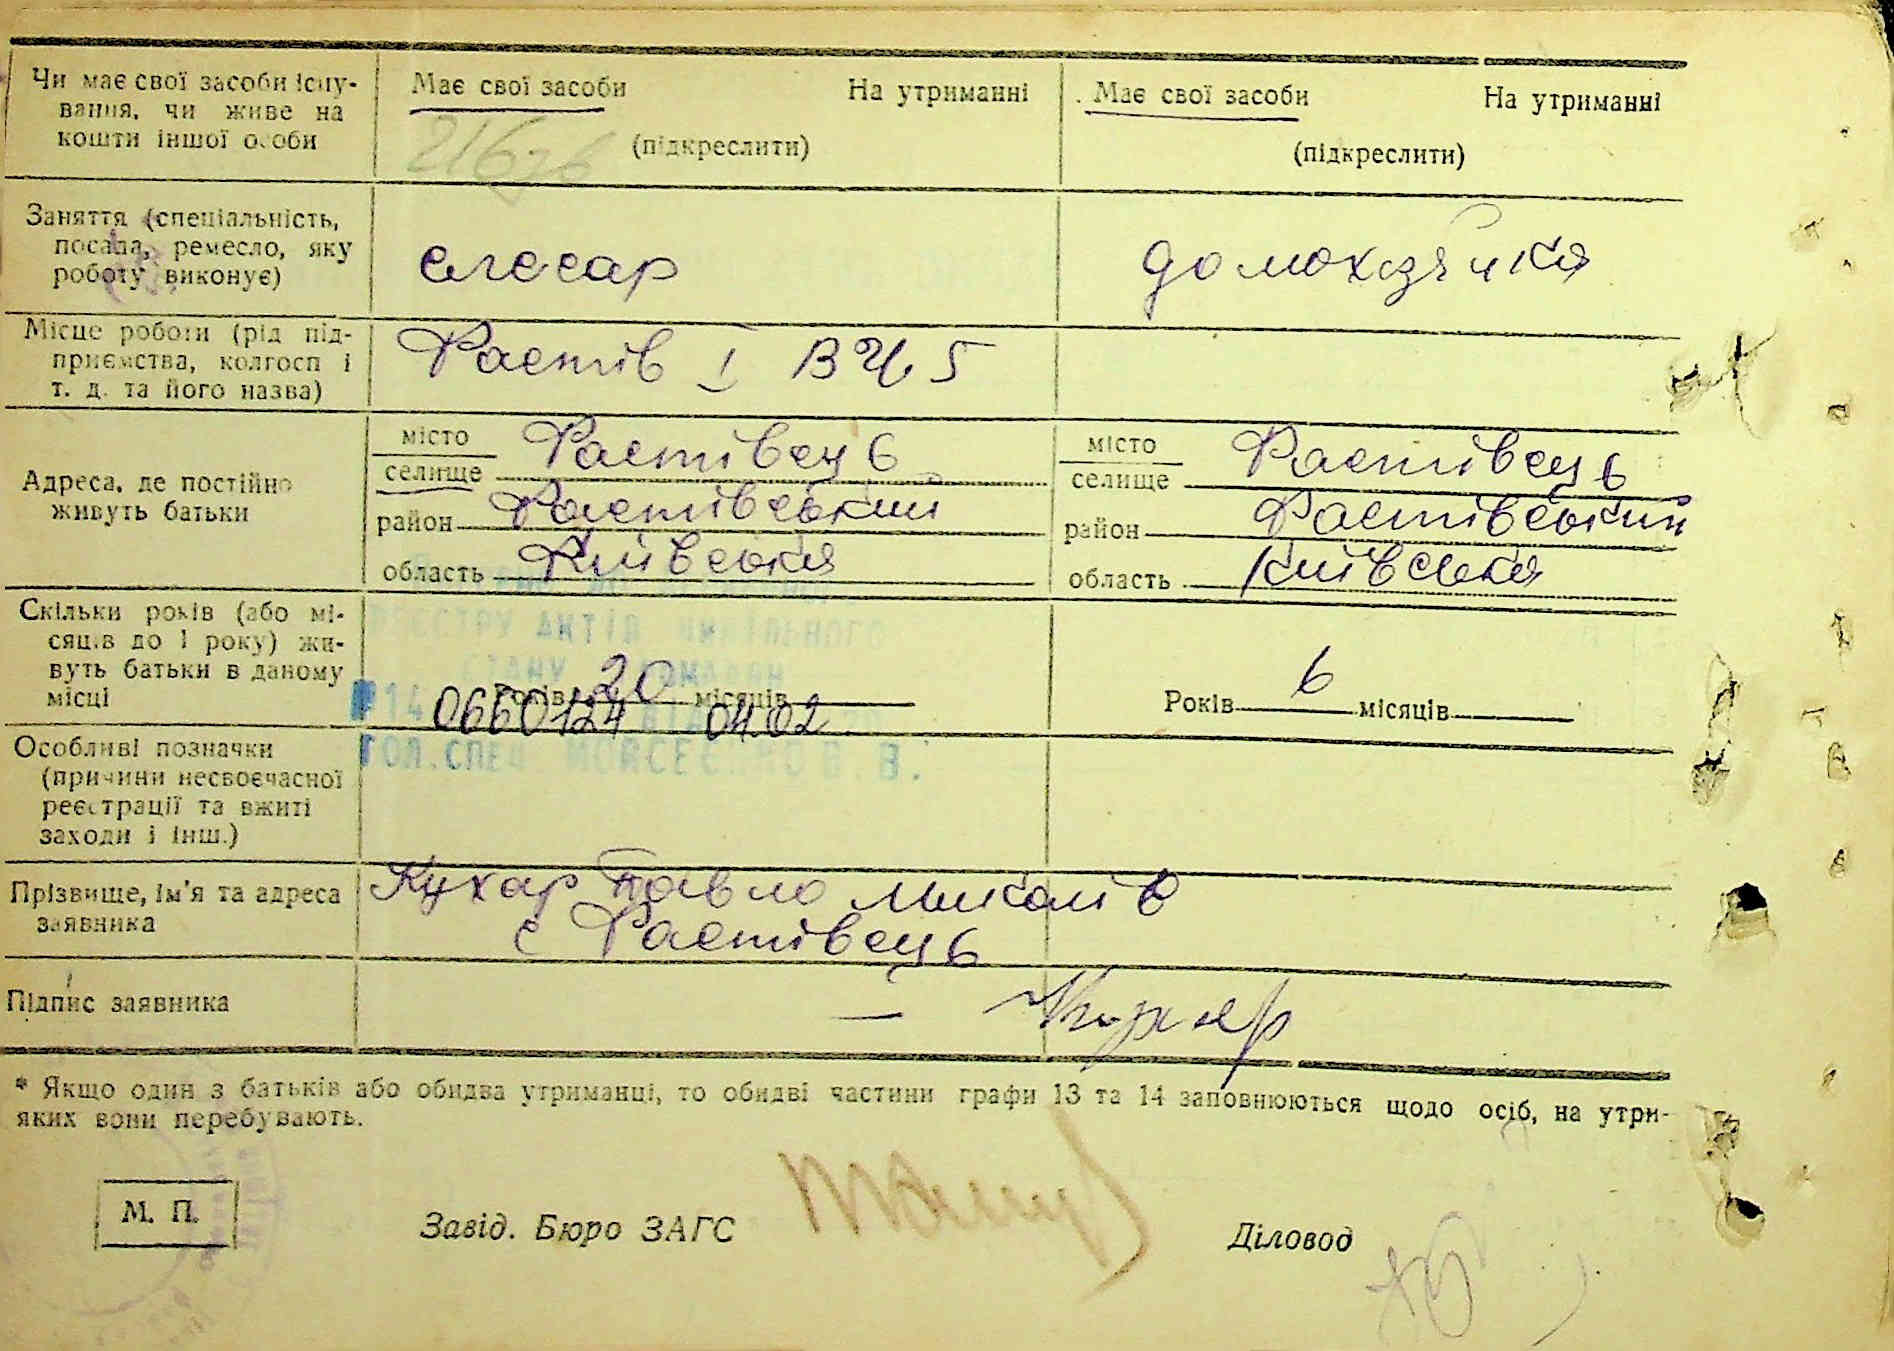 Чи має свої засоби існу-
вання, чи живе на
кошти іншої особи
Має свої засоби На утриманні
(підкреслити)
Має свої засоби На утриманні
(підкреслити)
Заняття (спеціальність,
посада, ремесло, яку
роботу виконує)
слесар
домохазяйка
Місце роботи (рід під-
приємства, колгосп і
т. д. та його назва)
Фастів I ВЧ 5
Адреса, де постійно
живуть батьки
місто
селище Фастівець
район Фастівський
область Київська
місто
селище Фастівець
район Фастівський
область Київська
Скільки років (або мі-
сяців до 1 року) жи-
вуть батьки в даному
місці
Років 20 місяців
Років 6 місяців
РЕЄСТРУ АКТІВ ЦИВІЛЬНОГО
СТАНУ ГРОМАДЯН
0660124 04.02
ГОЛ.СПЕЦ. МОЙСЕЄНКО В. В.
Особливі позначки
(причини несвоєчасної
реєстрації та вжиті
заходи і інш.)
Прізвище, ім'я та адреса
заявника
Кухар Павло Миколів
с Фастівець
Підпис заявника
— Кухар
* Якщо один з батьків або обидва утриманці, то обидві частини графи 13 та 14 заповнюються щодо осіб, на утри-
яких вони перебувають.
М. П.
Завід. Бюро ЗАГС
Діловод